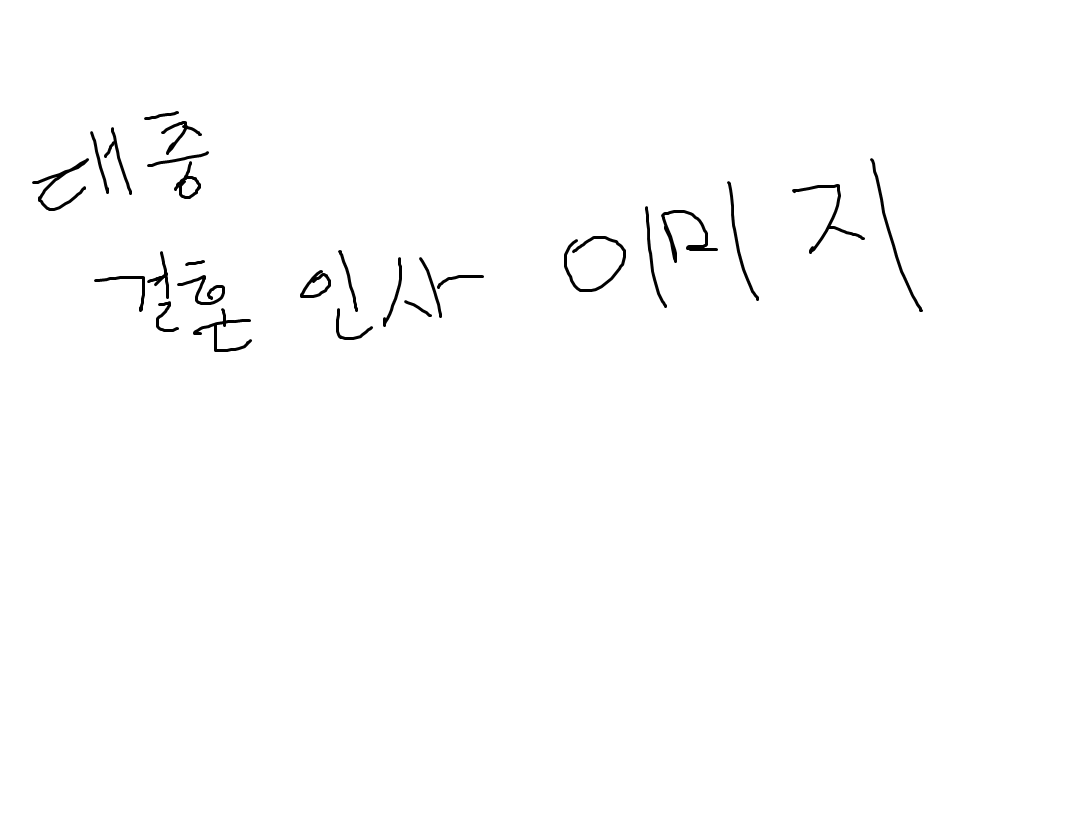 대충
결혼 인사 이미지